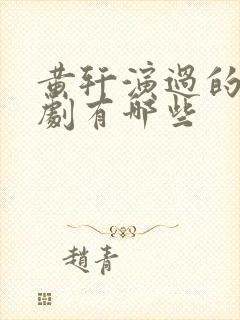 黄轩演过的
劇有哪些
趙青